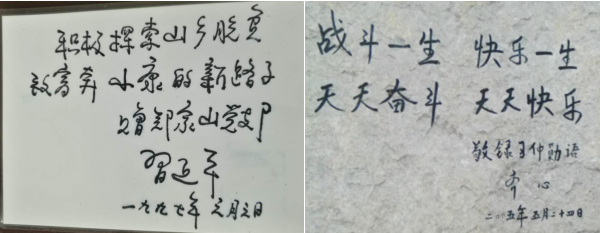 积极探索山乡脱贫
致富奔小康的新路子
赠郑家山党支部
習近平
一九九七年元月元日
战斗一生 快乐一生
天天奋斗 天天快乐
敬录习仲勋语
齐心
二〇〇五年五月二十四日